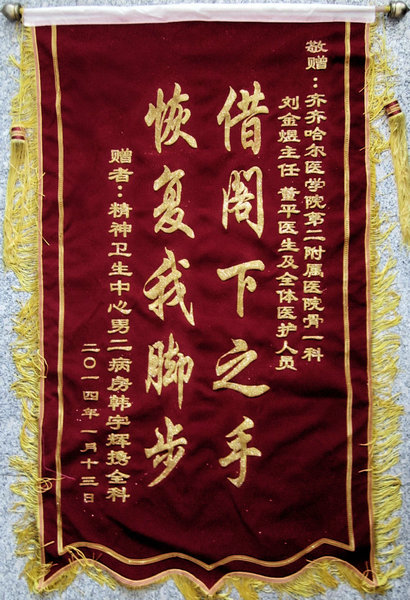 敬赠：齐齐哈尔医学院第二附属医院骨一科
刘金煜主任 董平医生及全体医护人员
借阁下之手
恢复我脚步
赠者：精神卫生中心男二病房韩宇辉携全科
二〇一四年一月十三日